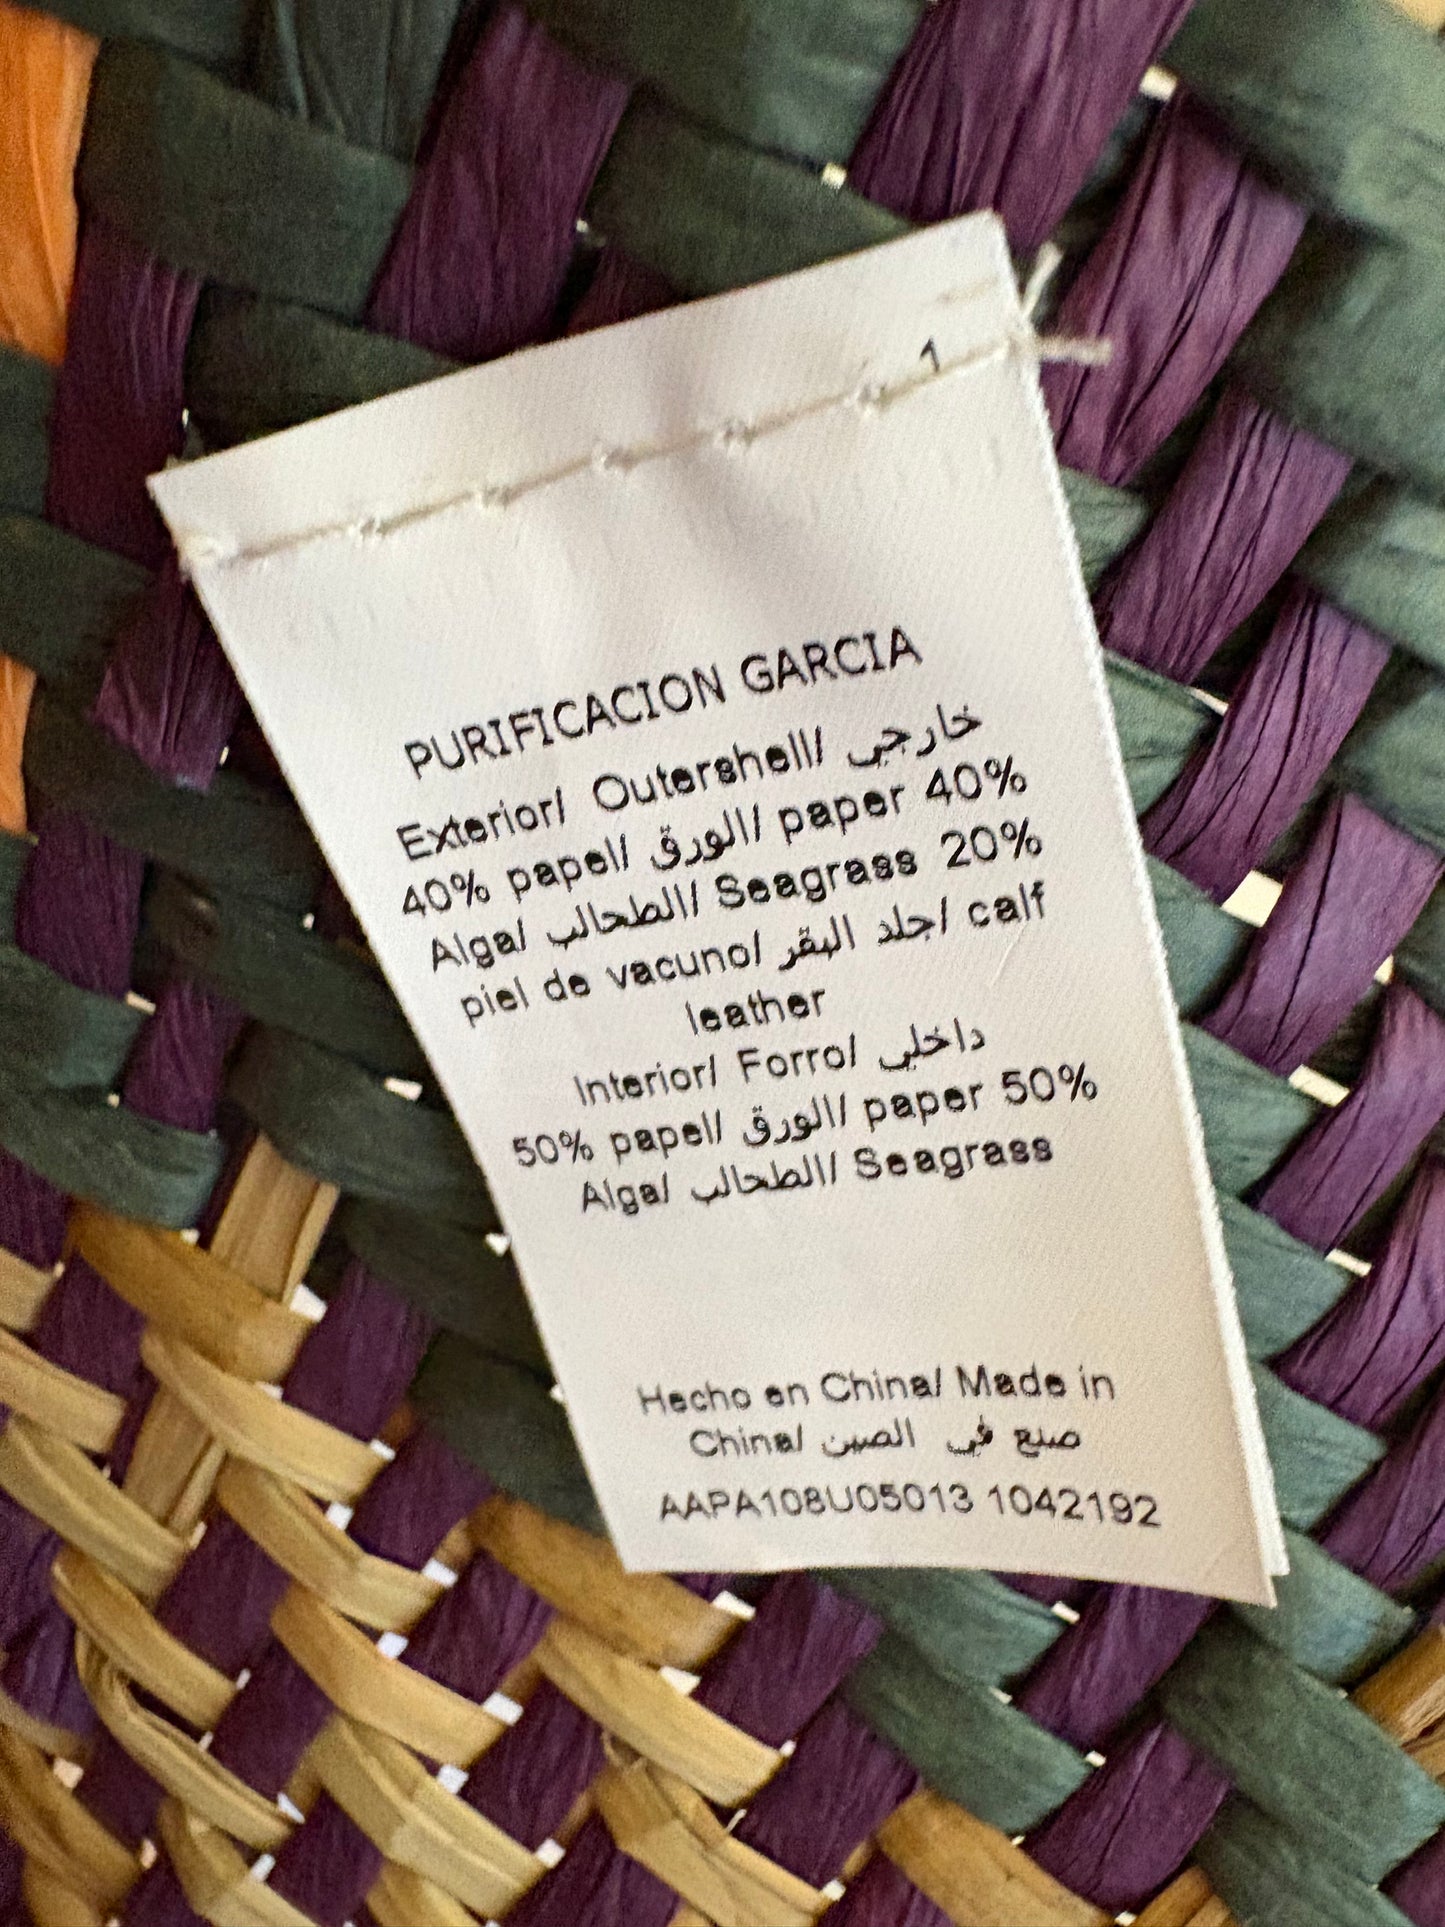 1
PURIFICACION GARCIA
Exterior/ Outershell/ خارجي
40% papel/ الورق/ paper 40%
Alga/ الطحالب/ Seagrass 20%
piel de vacuno/ جلد البقر/ calf
leather
Interior/ Forro/ داخلي
50% papel/ الورق/ paper 50%
Alga/ الطحالب/ Seagrass
Hecho en China/ Made in
China/ صنع في الصين
AAPA108U05013 1042192